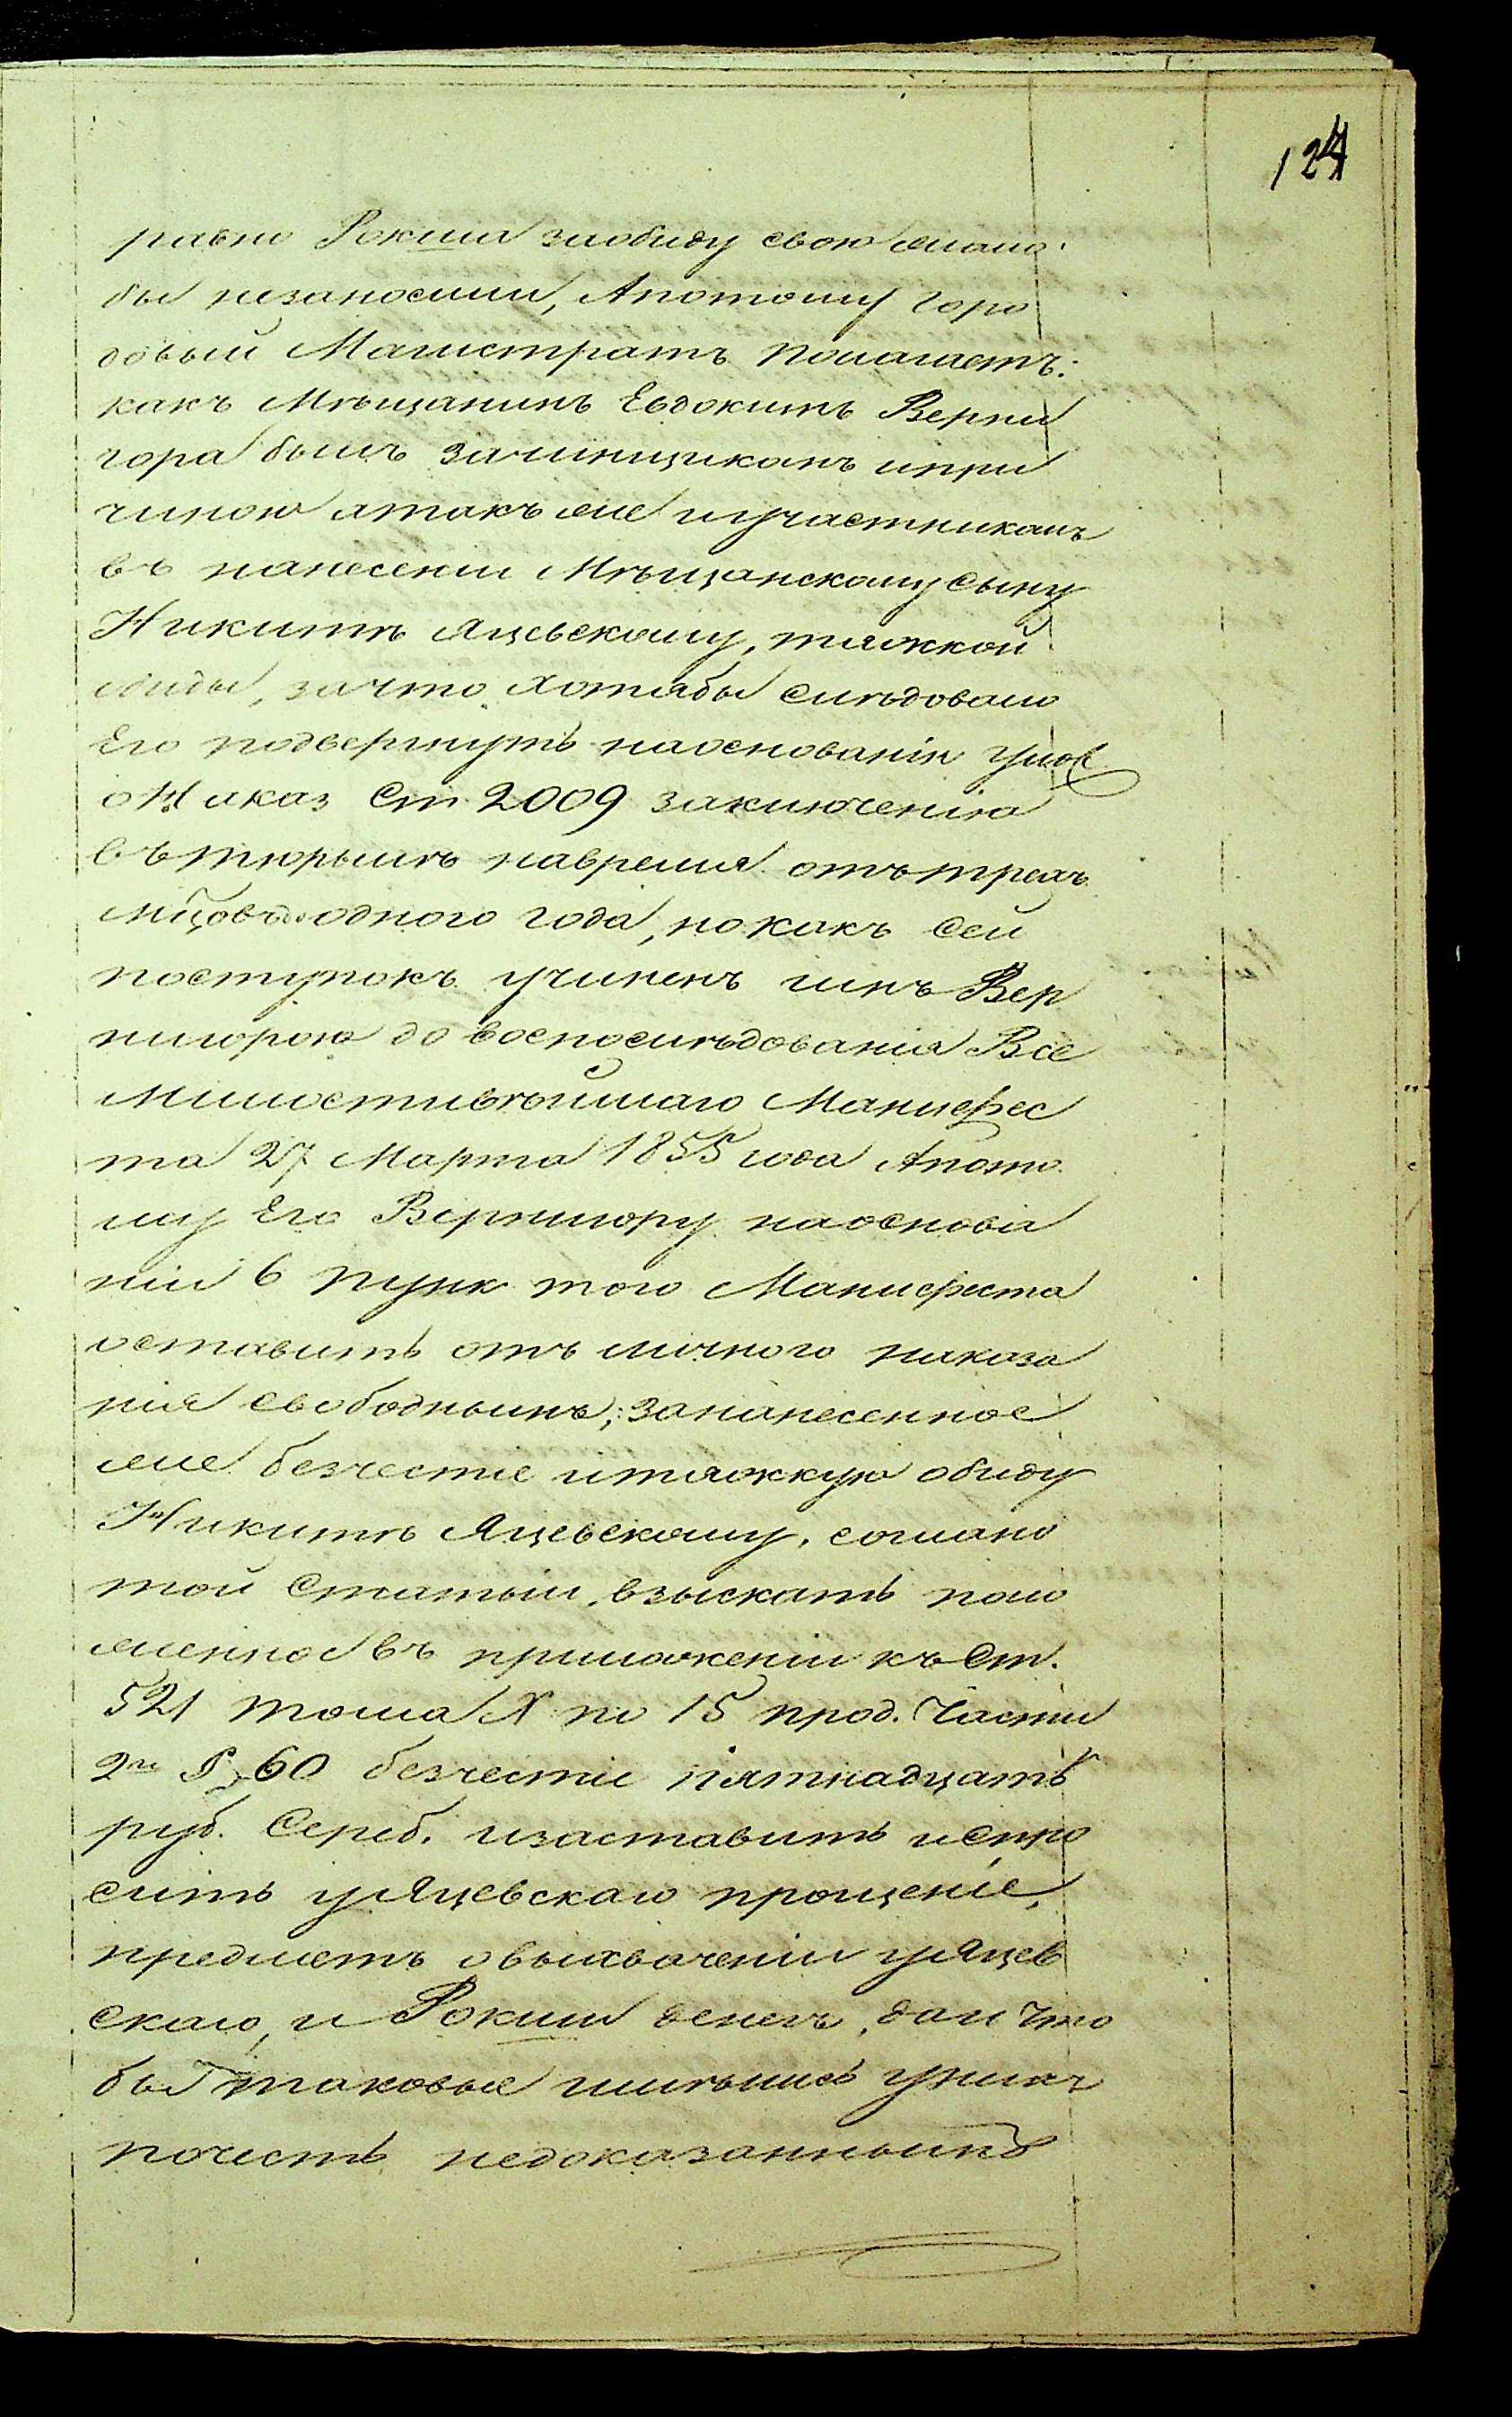 124
равно Рокиш заобиду свою жало
бы незаносили, Апотому Горо
довый Магистратъ Полагаетъ:
какъ Мѣщанинъ Евдокимъ Верни
гора былъ зачинщикомъ ипри
чиною атакъ же иучастникомъ
въ нанесеніи Мѣщанскому сыну
Никитѣ Яцевскому, тяжкой
обиды, зачто хотябы слѣдовало
Его подвергнуть наоснованіи улож
о Наказ Ст. 2009 заключенію
въ тюрьмѣ навремя отъ трехъ
мцовъ до одного года, но какъ сей
поступокъ учиненъ имъ Вер
нигорою до воспослѣдованія Все
Милостивѣйшаго Манифес
та 27 Марта 1855 года Апото
му Его Вернигору наоснова
ніи 6 пунк того Манифеста
оставить отъ личного наказа
нія свободнымъ; зананесенное
же безчестіе итяжкую обиду
Никитѣ Яцевскому, согласно
той Статьи, взыскать поло
женное въ приложеніи къ Ст.
521 тома X по 15 прод. Части
2й § 60 безчестіе пятнадцать
руб. Сереб. изаставить испро
сить уЯцевскаго прощеніе,
предметъ овыхваченіи уЯцев
скаго, и Рокиш денегъ, дали что
бы таковые имѣлись уних
почесть недоказаннымъ